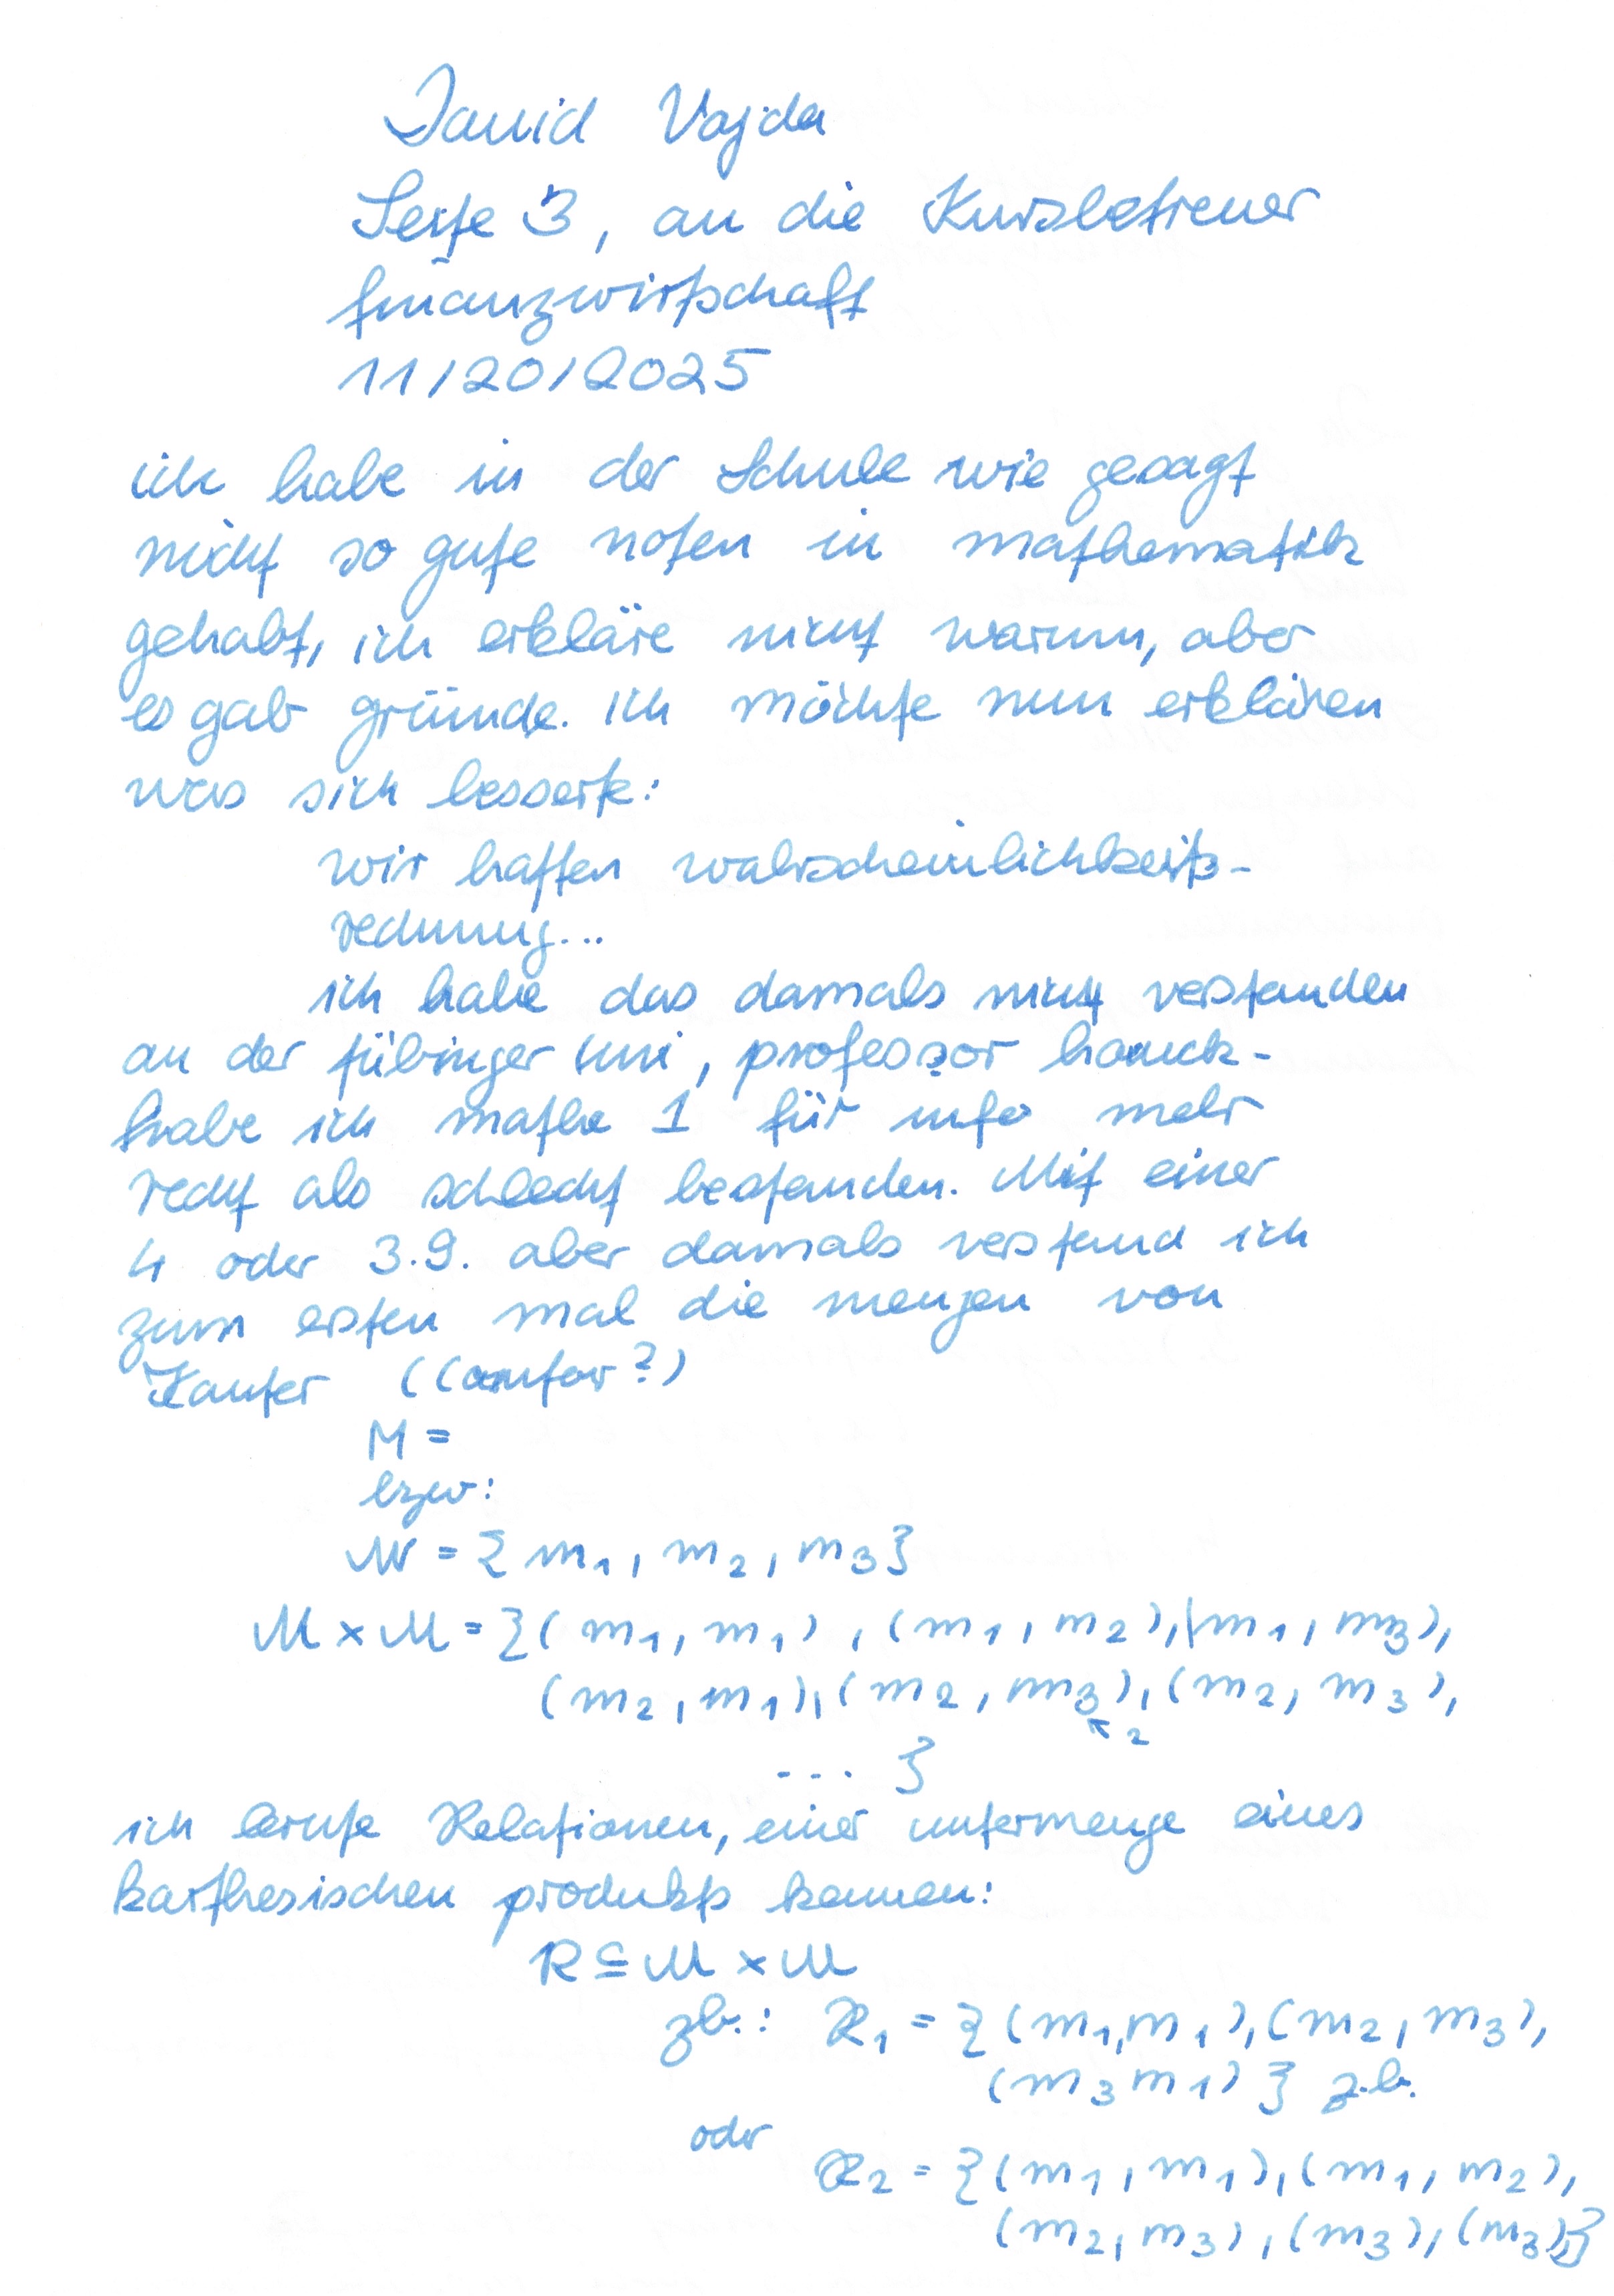 David Vajda
Seite 3, an die Kursbetreuer
finanzwirtschaft
11/20/2025
ich habe in der Schule wie gesagt
nicht so gute noten in mathematik
gehabt, ich erkläre nicht warum, aber
es gab gründe. ich möchte nun erklären
was sich besserte:
wir hatten wahrscheinlichkeits-
rechnung...
ich habe das damals nicht verstanden
an der tübinger uni, professor hauck -
habe ich mathe 1 für info mehr
recht als schlecht bestanden. Mit einer
4 oder 3.9. aber damals verstand ich
zum ersten mal die mengen von
Kanter ((antor?)
M =
bzw:
M = { m₁, m₂, m₃}
M × M = {( m₁, m₁), (m₁, m₂), (m₁, m₃),
(m₂, m₁), (m₂, m₃), (m₂, m₃),
↖ 2
... }
ich lernte Relationen, einer untermenge eines
karthesischen produkts kennen:
R ⊆ M × M
zb.: R₁ = {(m₁,m₁), (m₂, m₃),
(m₃ m₁) } z.b.
oder
R₂ = {(m₁, m₁), (m₁, m₂),
(m₂, m₃), (m₃), (m₃)}